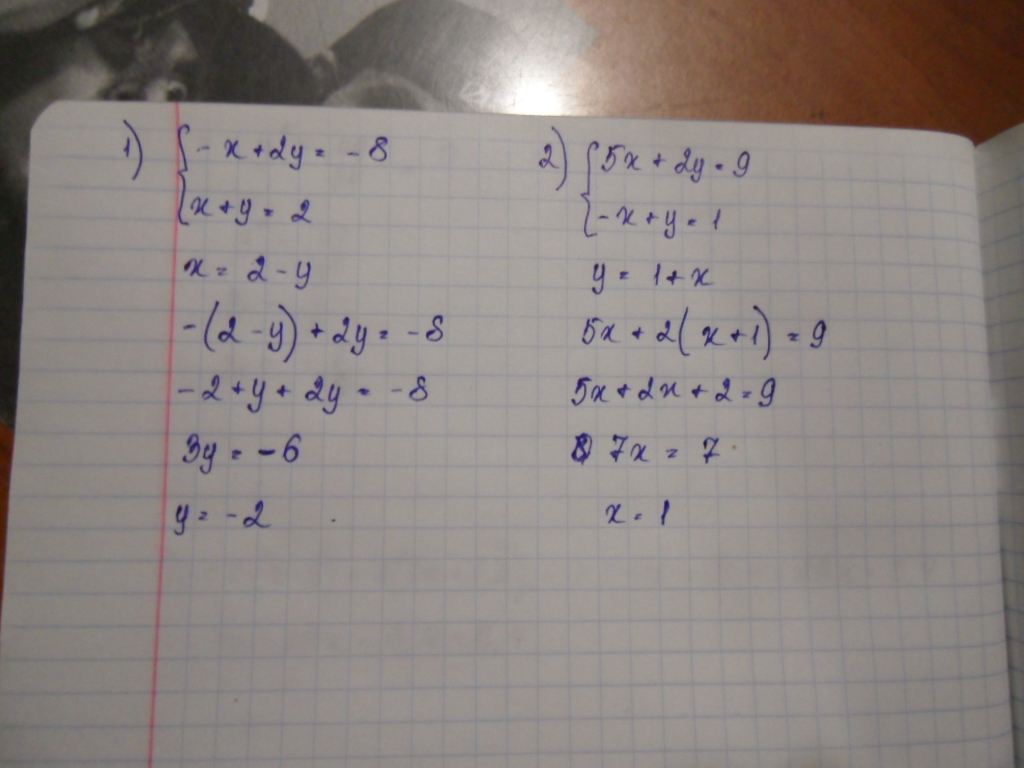 1) { -x+2y = -8
x+y = 2
x = 2-y
-(2-y)+2y = -8
-2+y+2y = -8
3y = -6
y = -2
2) { 5x+2y = 9
-x+y = 1
y = 1+x
5x+2(x+1) = 9
5x+2x+2 = 9
7x = 7
x = 1